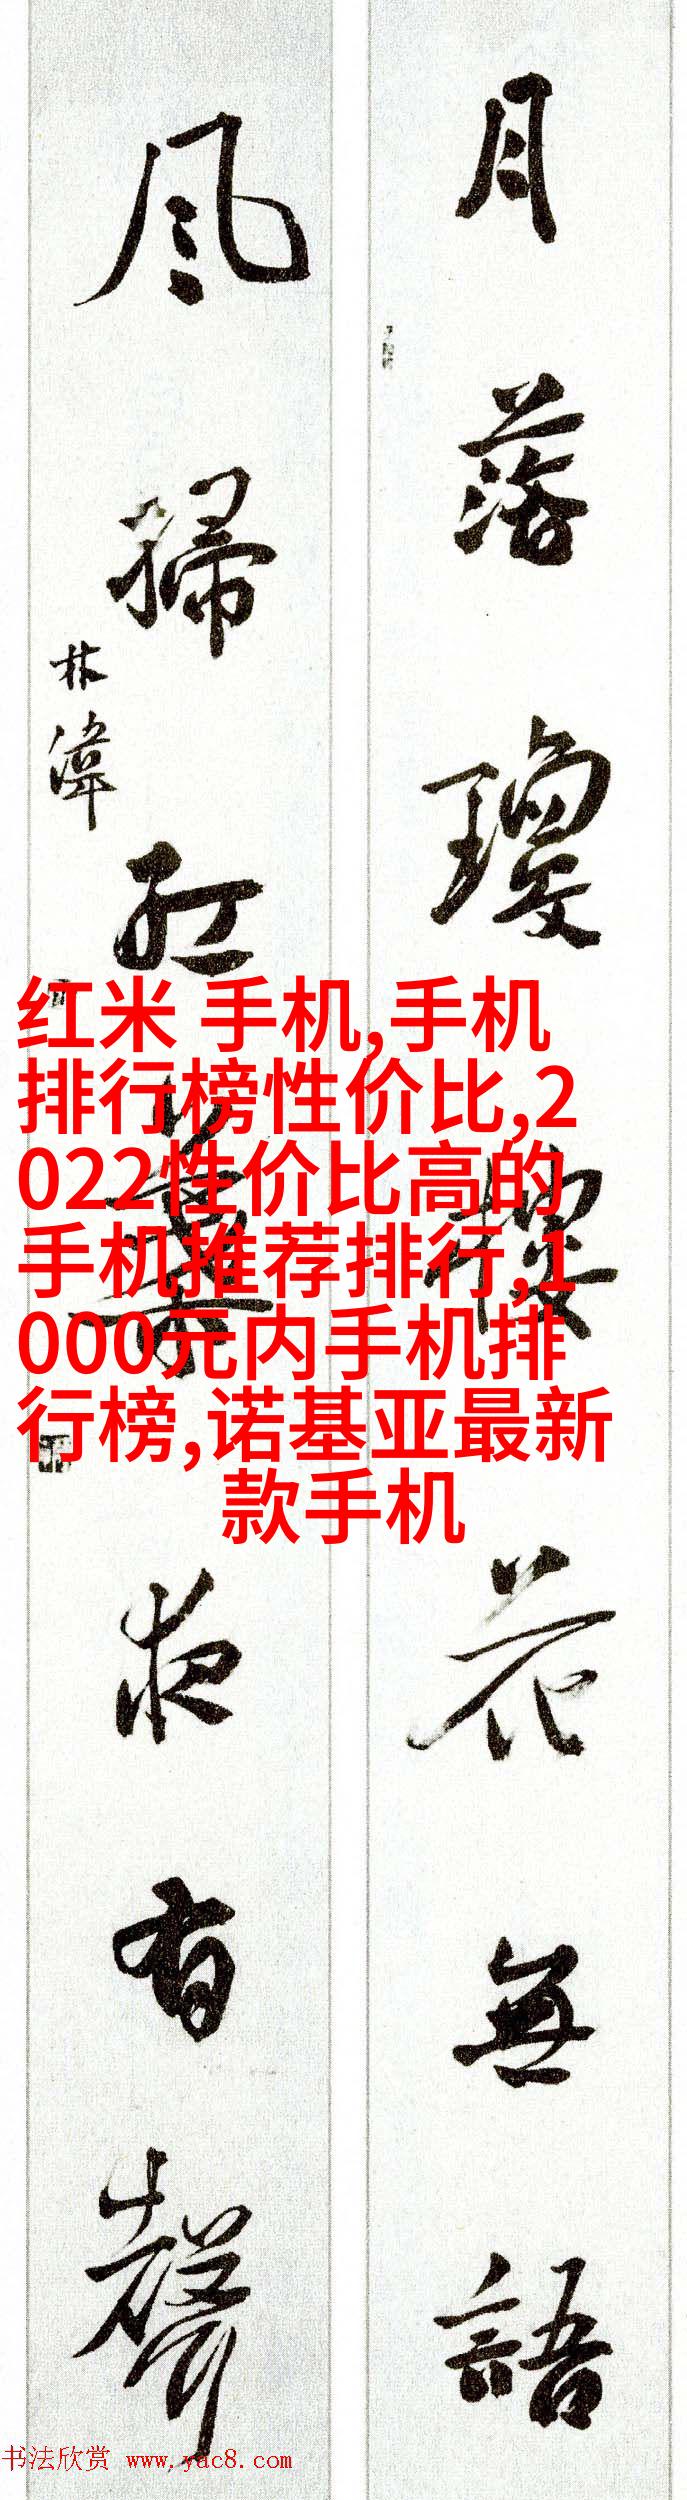 月落瓊樓花無語
風掃紅葉夜有聲
林
红米 手机,手机
排行榜性价比,2
022性价比高的
手机推荐排行,1
000元内手机排
行榜,诺基亚最新
款手机
书法欣赏 www.yac8.com